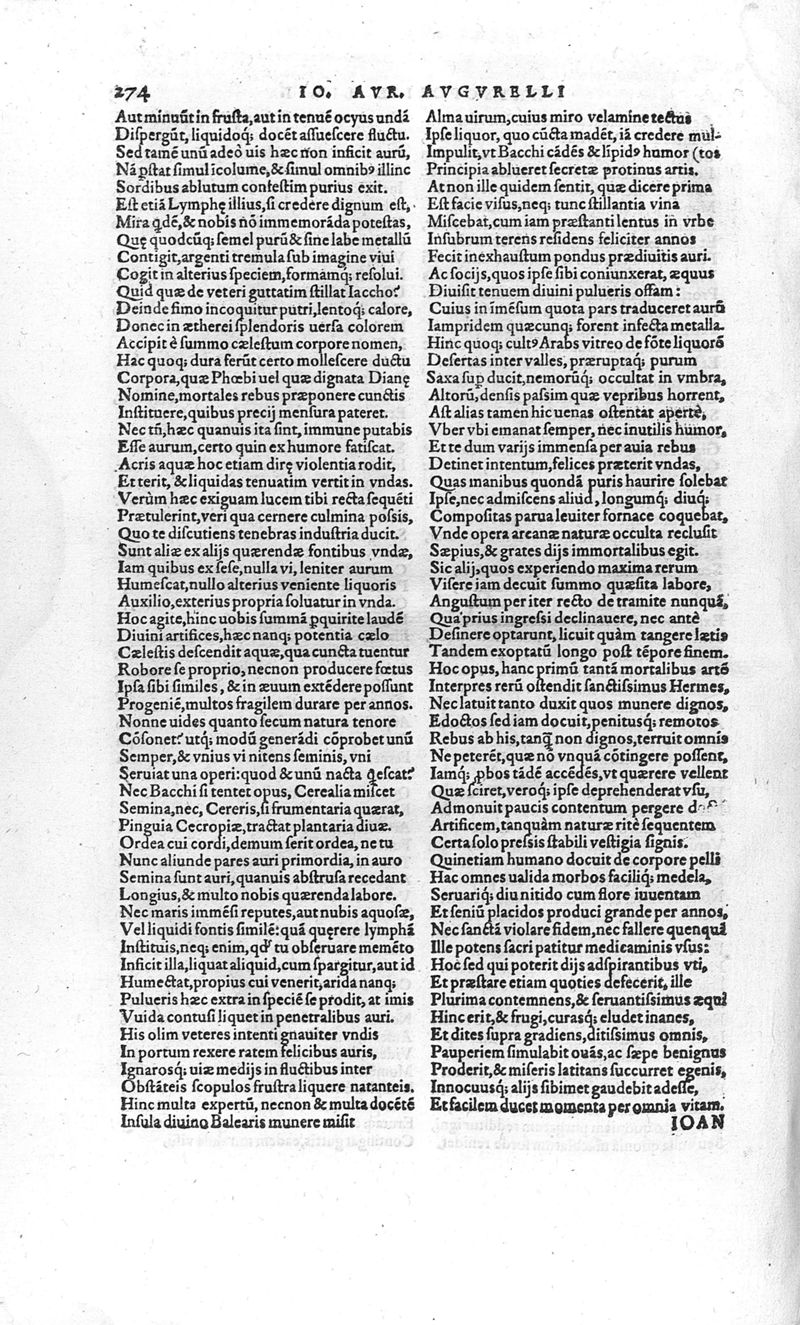 274 IO. AVR. AVGVRELLI
Aut minuũt in fruſta, aut in tenuẽ ocyus undã
Diſpergũt, liquidoq; docẽt aſſueſcere fluctu.
Sed tamẽ unũ adeò uis hæc non inficit aurũ,
Nã p̃ſtat ſimul ĩcolume, & ſimul omnibꝰ illinc
Sordibus ablutum confeſtim purius exit.
Eſt etiã Lymphę illius, ſi credere dignum eſt,
Mira q̃dẽ, & nobis nõ immemorãda poteſtas,
Quę quodcũq; ſemel purũ & ſine labe metallũ
Contigit, argenti tremula ſub imagine viui
Cogit in alterius ſpeciem, formamq; reſolui.
Quid quæ de veteri guttatim ſtillat Iaccho?
Deinde fimo incoquitur putri, lentoq; calore,
Donec in ætherei ſplendoris uerſa colorem
Accipit è ſummo cæleſtum corpore nomen,
Hac quoq; dura ferũt certo molleſcere ductu
Corpora, quæ Phœbi uel quæ dignata Dianę
Nomine, mortales rebus præponere cunctis
Inſtituere, quibus precij menſura pateret.
Nec tñ, hæc quanuis ita ſint, immune putabis
Eſſe aurum, certo quin ex humore fatiſcat.
Acris aquæ hoc etiam dirę violentia rodit,
Et terit, & liquidas tenuatim vertit in vndas.
Verùm hæc exiguam lucem tibi recta ſequẽti
Prætulerint, veri qua cernere culmina poſsis,
Quo te diſcutiens tenebras induſtria ducit.
Sunt aliæ ex alijs quærendæ fontibus vndæ,
Iam quibus ex ſeſe, nulla vi, leniter aurum
Humeſcat, nullo alterius veniente liquoris
Auxilio, exterius propria ſoluatur in vnda.
Hoc agite, hinc uobis ſummã ꝑquirite laudẽ
Diuini artifices, hæc nanq; potentia cælo
Cæleſtis deſcendit aquæ, qua cuncta tuentur
Robore ſe proprio, necnon producere fœtus
Ipſa ſibi ſimiles, & in æuum extẽdere poſſunt
Progeniẽ, multos fragilem durare per annos.
Nonne uides quanto ſecum natura tenore
Cõſonet? utq; modũ generãdi cõprobet unũ
Semper, & vnius vi nitens ſeminis, vni
Seruiat una operi: quod & unũ nacta q̃eſcat?
Nec Bacchi ſi tentet opus, Cerealia miſcet
Semina, nec, Cereris, ſi frumentaria quærat,
Pinguia Cecropiæ, tractat plantaria diuæ.
Ordea cui cordi, demum ſerit ordea, ne tu
Nunc aliunde pares auri primordia, in auro
Semina ſunt auri, quanuis abſtruſa recedant
Longius, & multo nobis quærenda labore.
Nec maris immẽſi reputes, aut nubis aquoſæ,
Vel liquidi fontis ſimilẽ: quã quęrere lymphã
Inſtituis, neq; enim, qđ tu obſeruare memẽto
Inficit illa, liquat aliquid, cum ſpargitur, aut id
Humectat, propius cui venerit, arida nanq;
Pulueris hæc extra in ſpeciẽ ſe prodit, at imis
Vuida contuſi liquet in penetralibus auri.
His olim veteres intenti gnauiter vndis
In portum rexere ratem felicibus auris,
Ignarosq; uiæ medijs in fluctibus inter
Obſtãteis ſcopulos fruſtra liquere natanteis.
Hinc multa expertũ, necnon & multa docẽtẽ
Inſula diuino Balearis munere miſit
Alma uirum, cuius miro velamine tectus
Ipſe liquor, quo cũcta madẽt, iã credere mul-
Impulit, vt Bacchi cãdẽs & lĩpidꝰ humor (tos
Principia ablueret ſecretæ protinus artis.
At non ille quidem ſentit, quæ dicere prima
Eſt facie viſus, neq; tunc ſtillantia vina
Miſcebat, cum iam præſtanti lentus in vrbe
Inſubrum terens reſidens feliciter annos
Fecit inexhauſtum pondus prædiuitis auri.
Ac ſocijs, quos ipſe ſibi coniunxerat, æquus
Diuiſit tenuem diuini pulueris offam:
Cuius in ĩmẽſum quota pars traduceret aurũ
Iampridem quæcunq; forent infecta metalla.
Hinc quoq; cultꝰ Arabs vitreo de fõte liquorẽ
Deſertas inter valles, præruptaq; purum
Saxa ſuꝑ ducit, nemorũq; occultat in vmbra,
Altorũ, denſis paſsim quæ vepribus horrent,
Aſt alias tamen hic uenas oſtentat apertè,
Vber vbi emanat ſemper, nec inutilis humor,
Et te dum varijs immenſa per auia rebus
Detinet intentum, felices præterit vndas,
Quas manibus quondã puris haurire ſolebat
Ipſe, nec admiſcens aliud, longumq; diuq;
Compoſitas parua leuiter fornace coquebat,
Vnde opera arcanæ naturæ occulta recluſit
Sæpius, & grates dijs immortalibus egit.
Sic alij, quos experiendo maxima rerum
Viſere iam decuit ſummo quæſita labore,
Anguſtum per iter recto de tramite nunquã,
Qua prius ingreſsi declinauere, nec antè
Deſinere optarunt, licuit quàm tangere lætis
Tandem exoptatũ longo poſt tẽpore finem.
Hoc opus, hanc primũ tantã mortalibus artẽ
Interpres rerũ oſtendit ſanctiſsimus Hermes,
Nec latuit tanto duxit quos munere dignos,
Edoctos ſed iam docuit, penitusq; remotos
Rebus ab his, tanq̃ non dignos, terruit omnis
Ne peterẽt, quæ nõ vnquã cõtingere poſſent,
Iamq; ꝓbos tãdẽ accẽdẽs, vt quærere vellent
Quæ ſciret, veroq; ipſe deprehenderat vſu,
Admonuit paucis contentum pergere
Artificem, tanquàm naturæ ritè ſequentem
Certa ſolo preſsis ſtabili veſtigia ſignis.
Quinetiam humano docuit de corpore pelli
Hac omnes ualida morbos faciliq; medela,
Seruariq; diu nitido cum flore iuuentam
Et ſeniũ placidos produci grande per annos,
Nec ſanctã violare fidem, nec fallere quenquã
Ille potens ſacri patitur medicaminis vſus:
Hoc ſed qui poterit dijs adſpirantibus vti,
Et præſtare etiam quoties defecerit, ille
Plurima contemnens, & ſeruantiſsimus æqui
Hinc erit, & frugi, curasq; eludet inanes,
Et dites ſupra gradiens, ditiſsimus omnis,
Pauperiem ſimulabit ouãs, ac ſæpe benignus
Proderit, & miſeris latitans ſuccurret egenis,
Innocuusq; alijs ſibimet gaudebit adeſſe,
Et facilem ducet momenta per omnia vitam.
IOAN